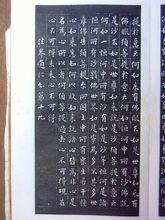 提於意云何如來有佛眼不如是世尊如來有
佛眼須菩提於意云何如恒河中所有沙佛說
是沙不如是世尊如來說是沙須菩提於意云
何如一恒河中所有沙有如是等恒河是諸恒
河所有沙數佛世界如是寧為多不甚多世尊
佛告須菩提爾所國土中所有眾生若干種心
如來悉知何以故如來說諸心皆為非心是
名為心所以者何須菩提過去心不可得現在
心不可得未來心不可得
法界通化分第十九